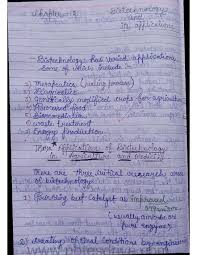 Chapter - 12
Biotechnology
and
its applications
Biotechnology has varied applications
Some of which include -
1) Therapeutics (healing process)
2) Diagnostics
3) Genetically modified crops for agriculture
4) Processed food
5) waste treatment
6) Energy production
Applications of Biotechnology
in Agriculture and medicine
There are three critical research areas
of biotechnology.
1) Providing best catalyst as improved
organism
(usually microbe or
pure enzyme)
2) creating optimal conditions by engineering